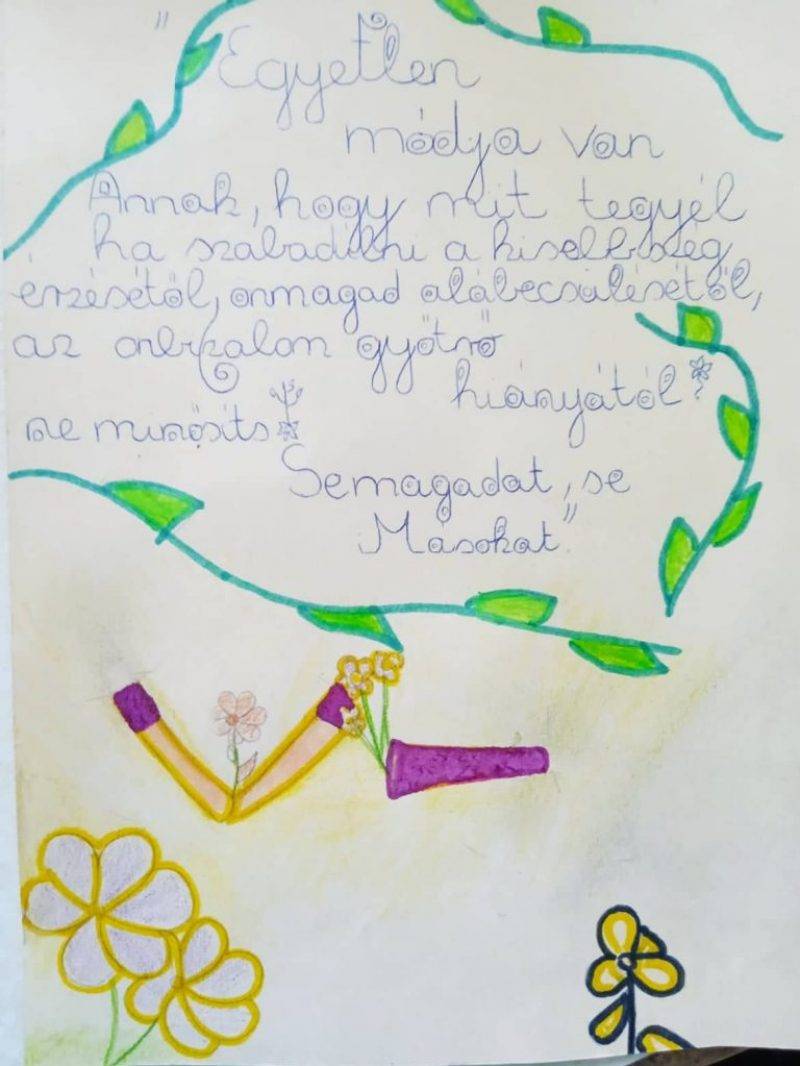 " Egyetlen
módja van
Annak, hogy mit tegyél
ha szabadulni a kisebbség
érzésétől, önmagad alábecsülésétől,
az önbizalom gyötrő
hiányától
ne minősíts
Semagadat, se
Másokat"